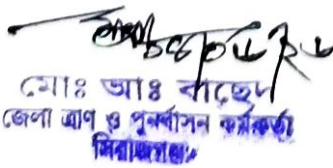 মোঃ আঃ বাছেদ
জেলা ত্রাণ ও পুনর্বাসন কর্মকর্তা
সিরাজগঞ্জ।